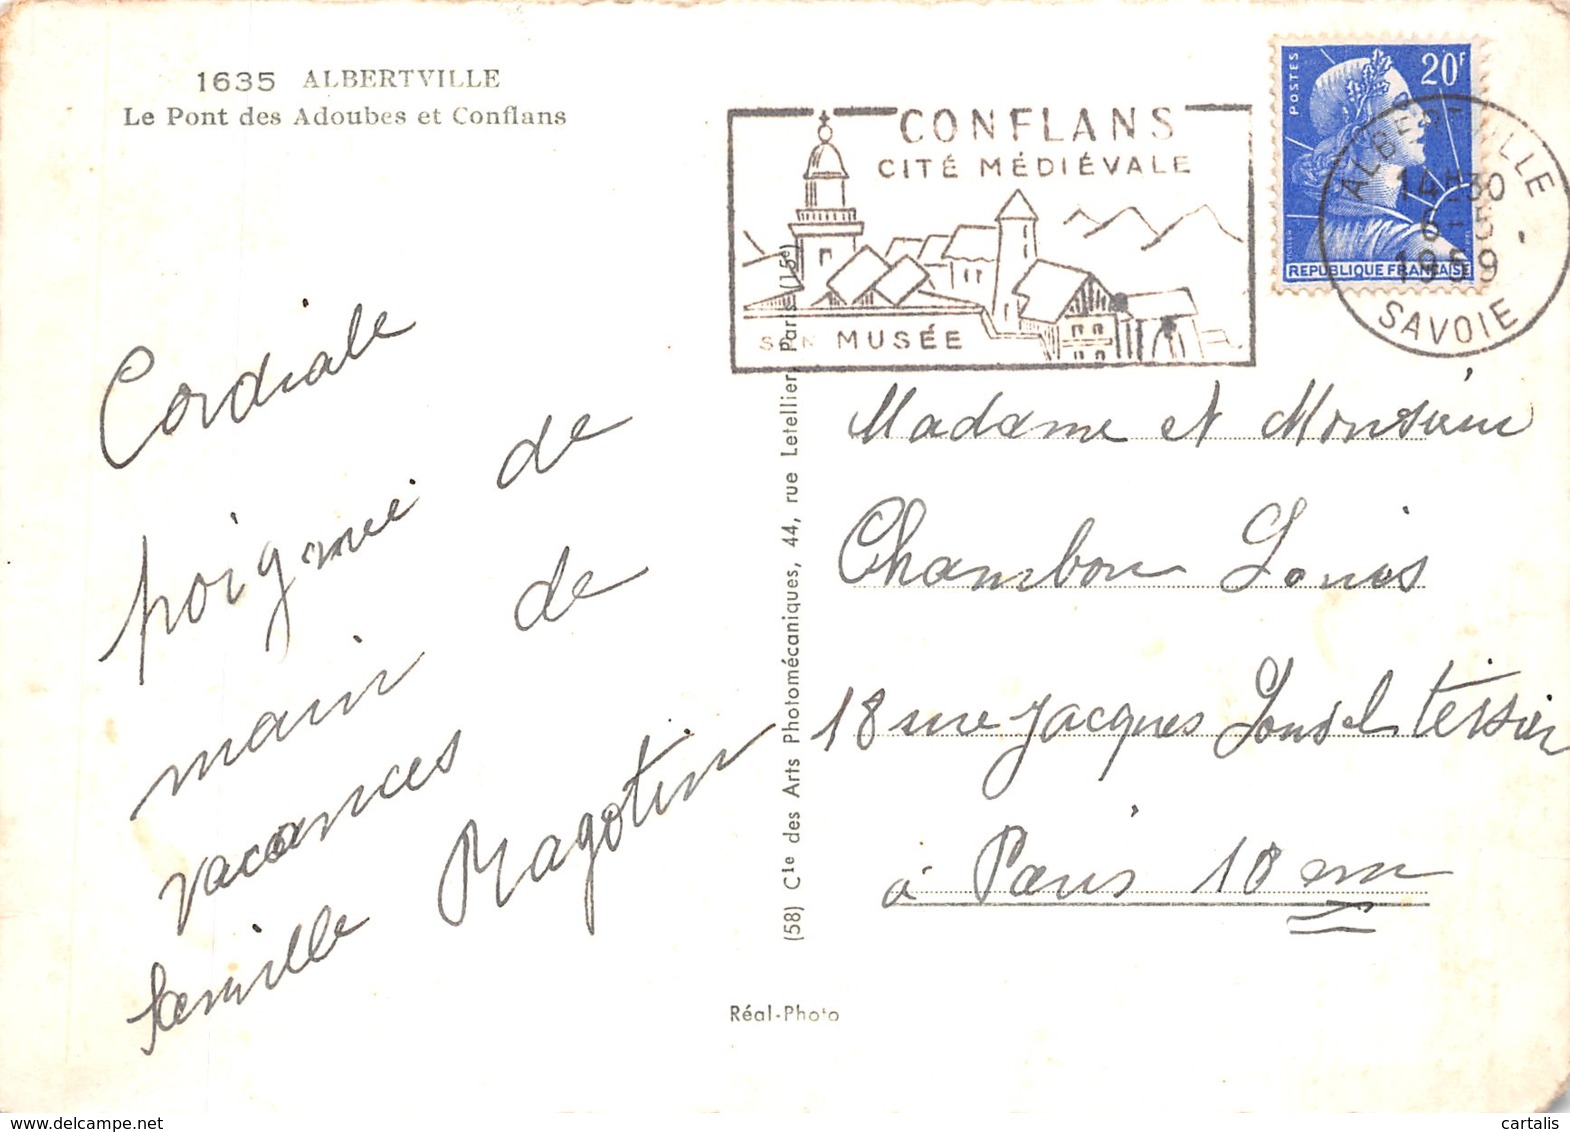 1635 ALBERTVILLE
Le Pont des Adoubes et Conflans
CONFLANS
CITÉ MÉDIÉVALE
SON MUSÉE
POSTES
20F
REPUBLIQUE FRANÇAISE
ALBERTVILLE
14H30
6-5
1959
SAVOIE
Cordiale
poignée de
main de
vacances
famille Ragotin
Madame et Monsieur
Chambon Louis
18 rue Jacques Tessier
à Paris 18 em
(58) Cie des Arts Photomécaniques, 44, rue Letellier, Paris (15e)
Réal-Photo
www.delcampe.net
cartalis